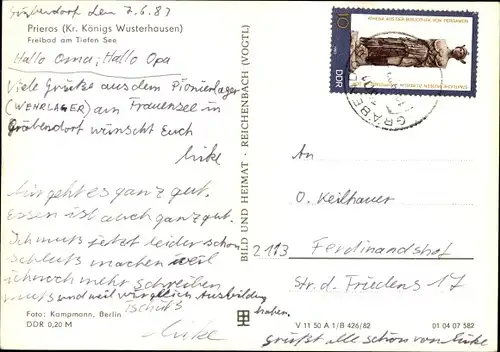 Gräbendorf den 7.6.83
Prieros (Kr. Königs Wusterhausen)
Freibad am Tiefen See
Hallo Oma, Hallo Opa
Viele Grüße aus dem Pionierlager
(WEHRLAGER) am Frauensee in
Gräbendorf wünscht Euch
Mir geht es ganz gut.
Essen ist auch ganz gut.
Ich muß jetzt leider schon
schluß machen weil
ich noch mehr schreiben
muß und weil wir gleich Ausbildung
haben.
Tschüß
grüßt alle schön von
Foto: Kampmann, Berlin
DDR 0,20 M
BILD UND HEIMAT · REICHENBACH (VOGTL)
V 11 50 A 1/B 426/82
01 04 07 582
10
DDR
An
O. Keilhauer
2113
Ferdinandshof
Str. d. Friedens 17